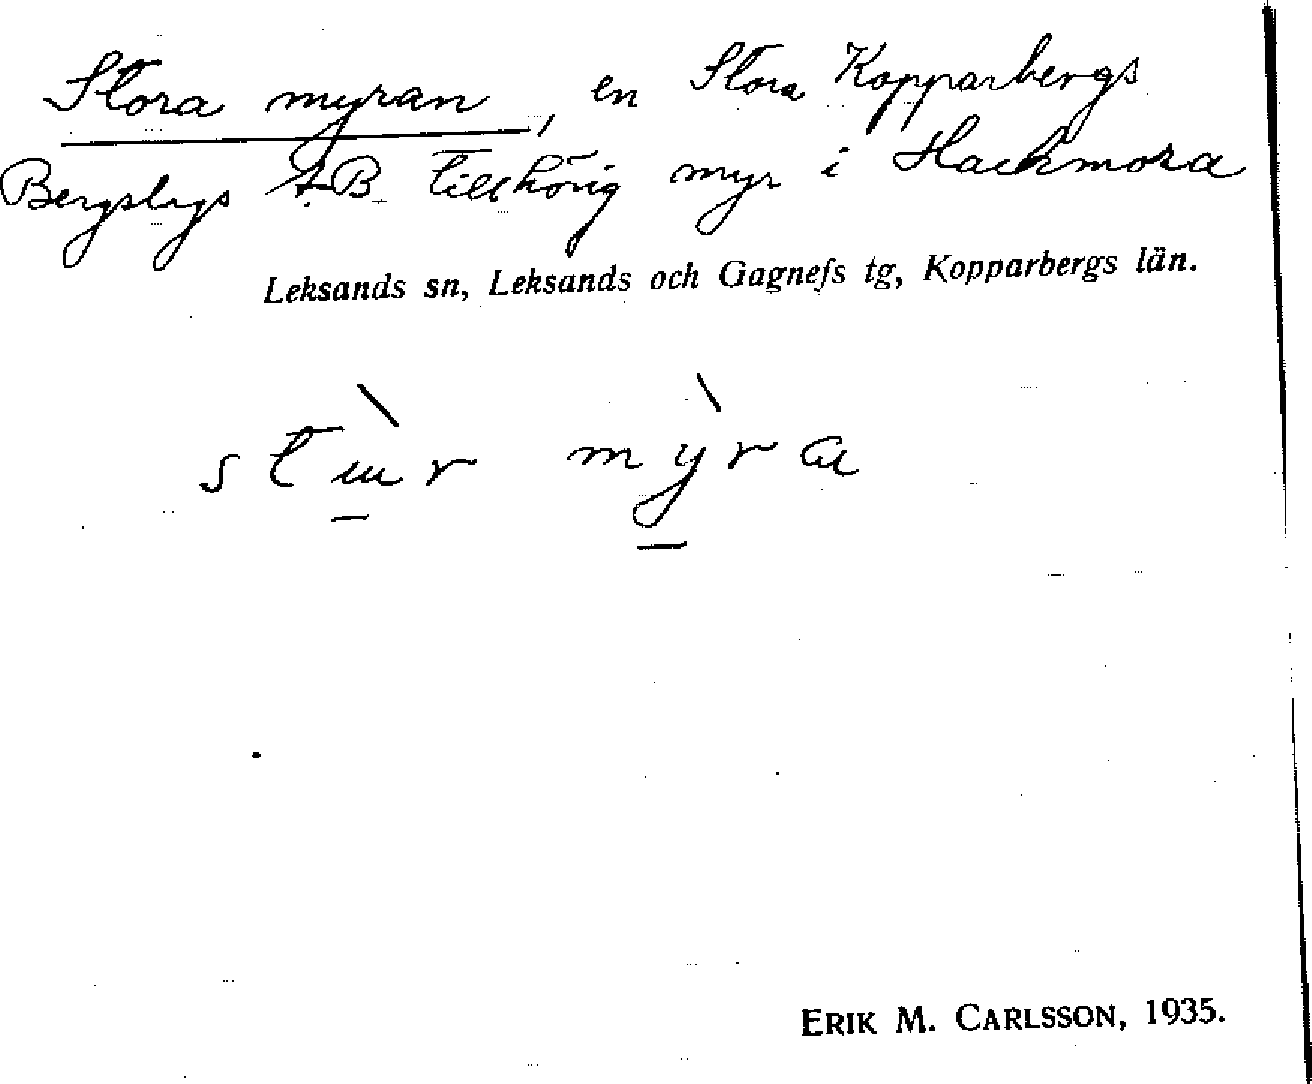 Stora myran, en Stora Kopparbergs
Bergslags A.B. tillhörig myr i Hackmora
Leksands sn, Leksands och Gagnefs tg, Kopparbergs län.
ERIK M. CARLSSON, 1935.